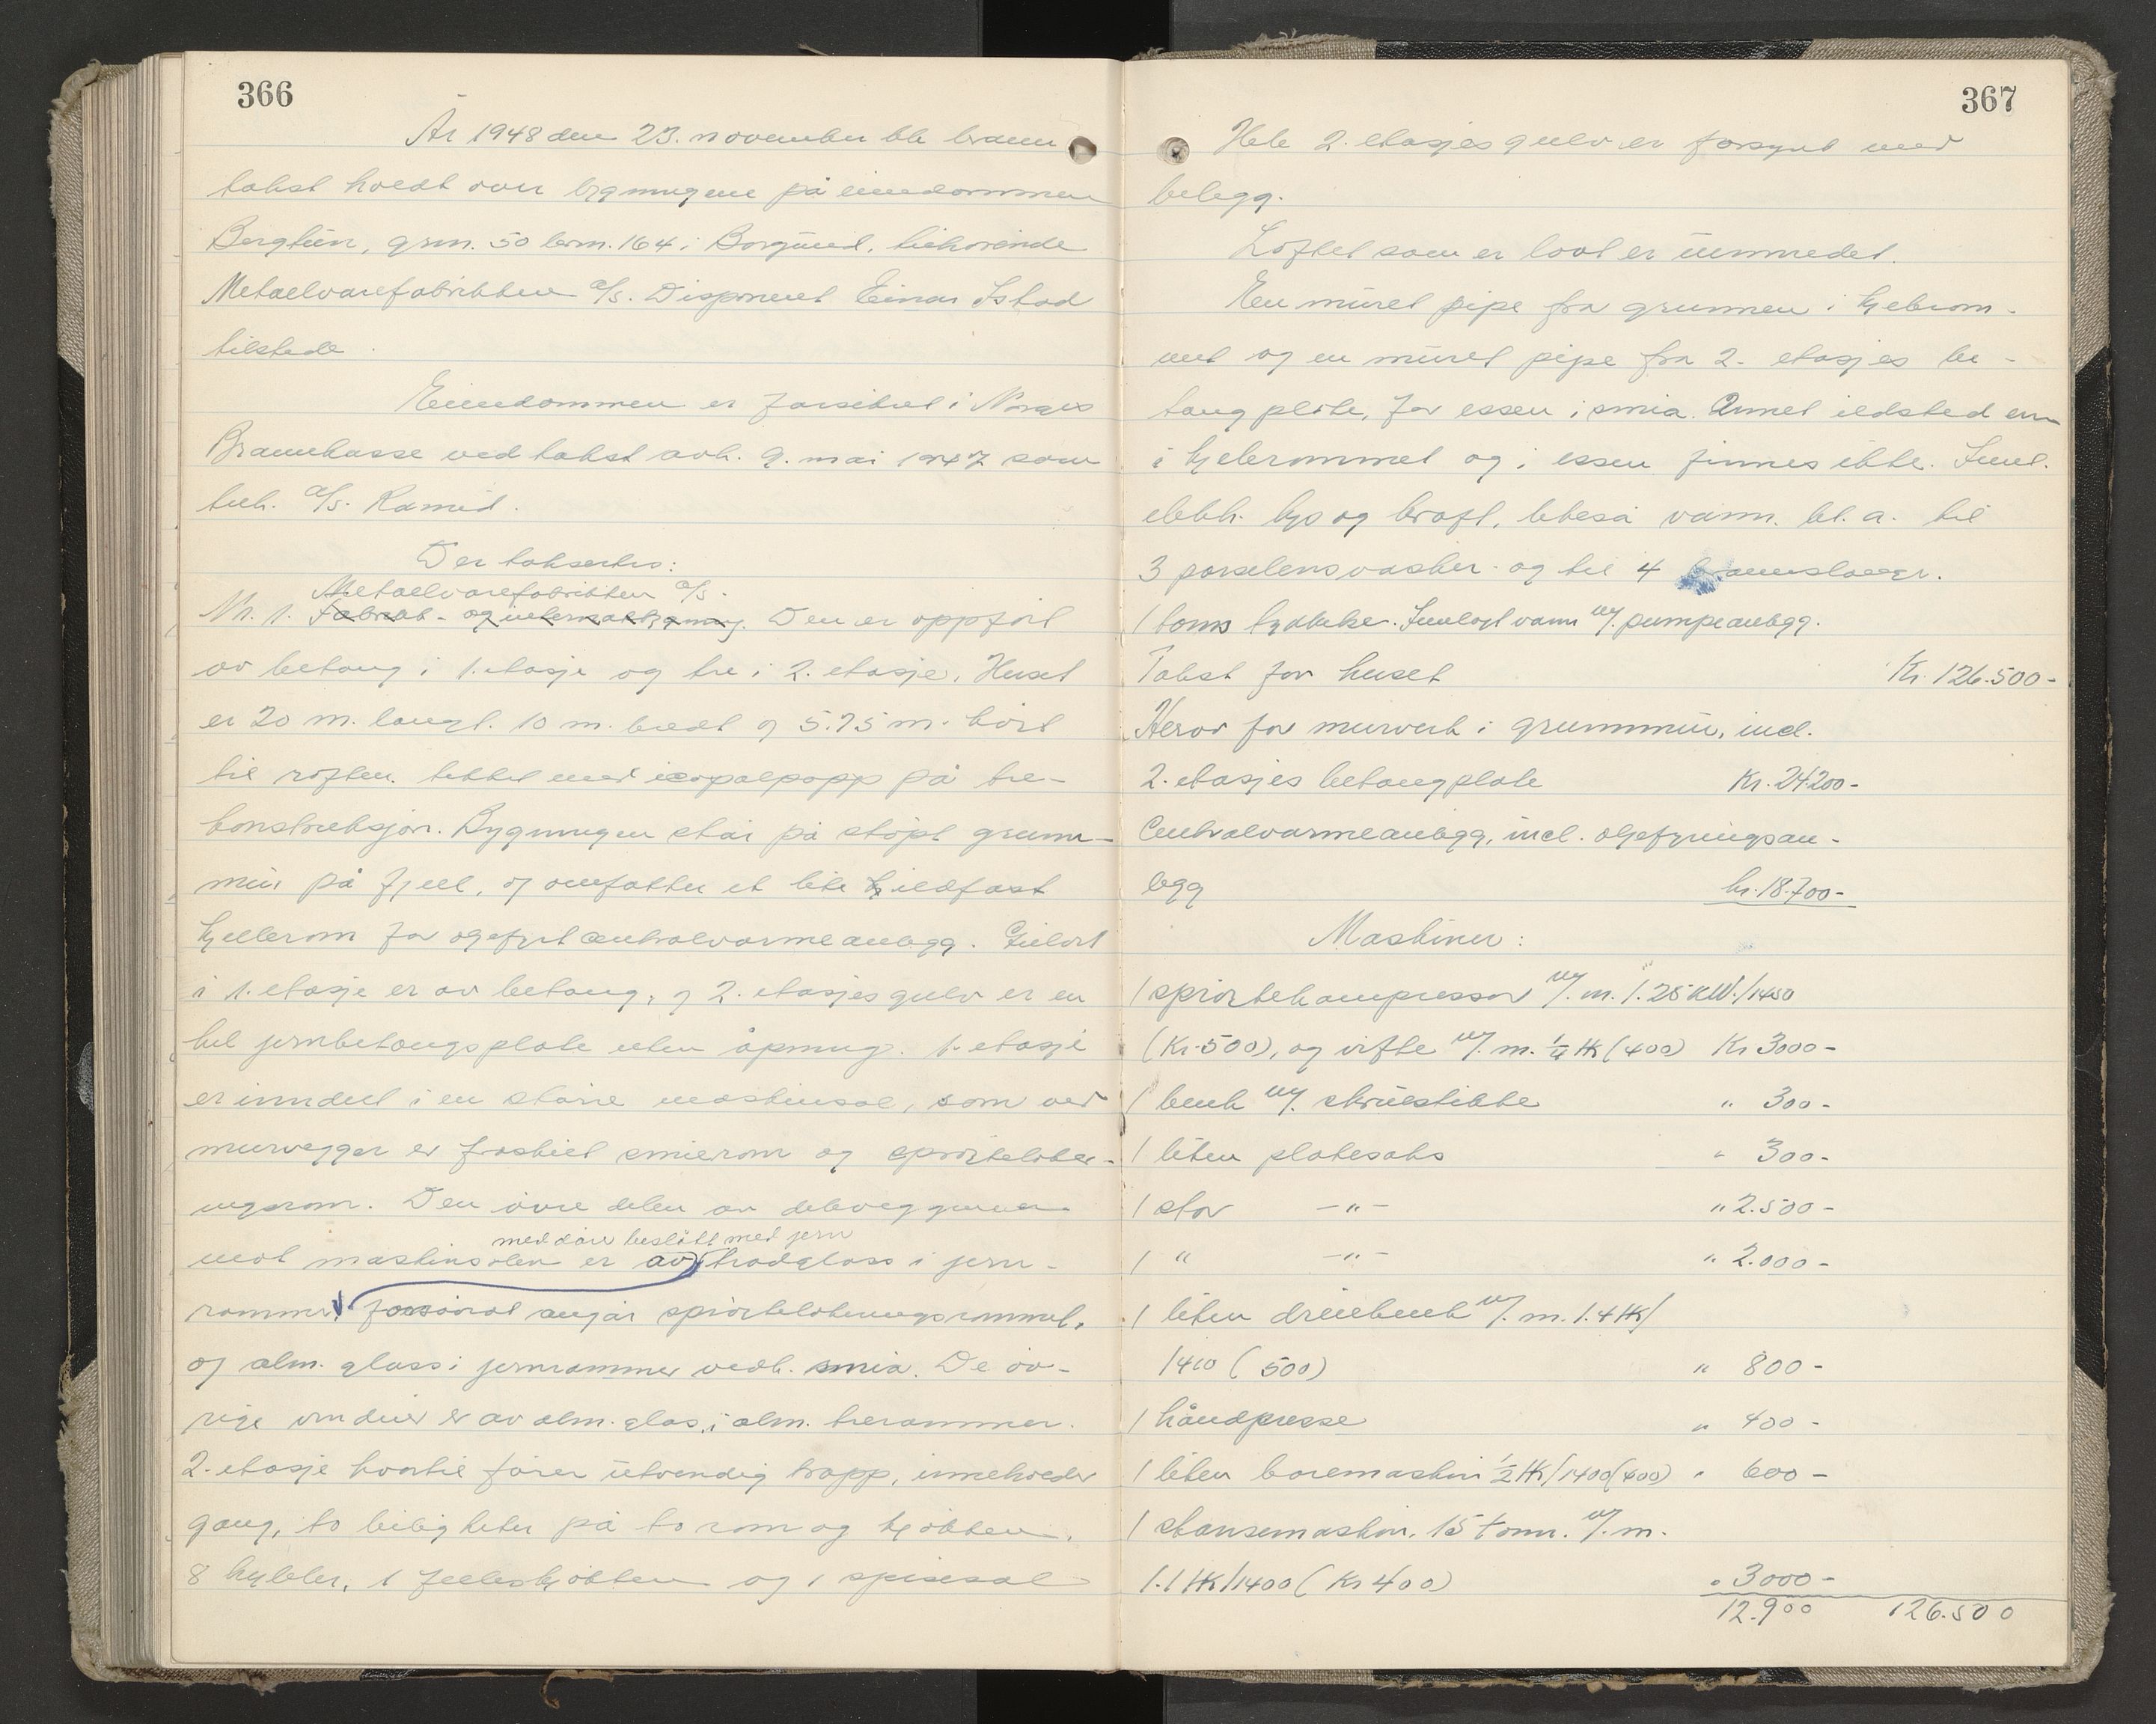 366
År 1948 den 23. november ble brann
takst holdt over bygningene på eiendommen
Bergtun, grnr. 50 brnr. 164 i Borgund, tilhørende
Metallvarefabrikken a/s. Disponent Einar Istad
tilstede.
Eiendommen er forsikret i Norges
Brannkasse ved takst avh. 9. mai 1947 som
tilh. a/s. Ramid.
Der takseres:
Metallvarefabrikken a/s.
Nr. 1. Fabrikk- og internatbygning. Den er oppført
av betong i 1. etasje og tre i 2. etasje. Huset
er 20 m. langt. 10 m. bredt og 5.75 m. høit
til røften. tekket med icopalpapp på tre-
konstruksjon. Bygningen står på støpt grunn-
mur på fjell, og omfatter et lite ildfast
kjellerom for oljefyrt centralvarmeanlegg. Gulvet
i 1. etasje er av betong, og 2. etasjes gulv er en
hel jernbetongsplate uten åpning. 1. etasje
er inndelt i en større maskinsal, som ved
murvegger er fraskilt smierom og sprøitelaker-
ingsrom. Den øvre delen av deleveggene
med dører beslått med jern
mot maskinsalen er av trådglass i jern-
rammer forsåvidt angår sprøitelakeringsrommet,
og alm. glass i jernrammer vedk. smia. De øv-
rige vinduer er av alm. glas, i alm. trerammer.
2. etasje hvortil fører utvendig trapp, inneholder
gang, to leiligheter på to rom og kjøkken,
8 hybler, 1 felleskjøkken og 1 spisesal
367
Hele 2. etasjes gulv er forsynt med
belegg.
Loftet som er lavt er uinnredet.
En muret pipe fra grunnen i kjelerom-
met og en muret pipe fra 2. etasjes be-
tongplate, for essen i smia. Annet ildsted enn
i kjelerommet og i essen finnes ikke. Innl.
elektr. lys og kraft, likeså vann, bl. a. til
3 porselensvasker og til 4 brannslanger.
1 toms trykk. Innlagt vann m/. pumpeanlegg.
Takst for huset Kr. 126.500-
Herav for murverk i grunnmur, incl.
2. etasjes betongplate Kr. 24200-
Centralvarmeanlegg, incl. oljefyringsan-
legg kr. 18.700-
Maskiner:
1 sprøitekompressor m/. m. 1.25 KW./1450
(Kr. 500), og vifte m/. m. 1/4 HK (400) Kr 3000-
1 benk m/. skruestikke " 300-
1 liten platesaks " 300-
1 stor -"- " 2.500-
1 " -"- " 2.000-
1 liten dreiebenk m/. m. 1.4 HK/
1400 (500) " 800-
1 håndpresse " 400-
1 liten boremaskin 1/2 HK/1400 (400) " 600-
1 stansemaskin, 15 tonn. m/. m.
1.1 HK/1400 (Kr 400) " 3000-
12.900 126.500